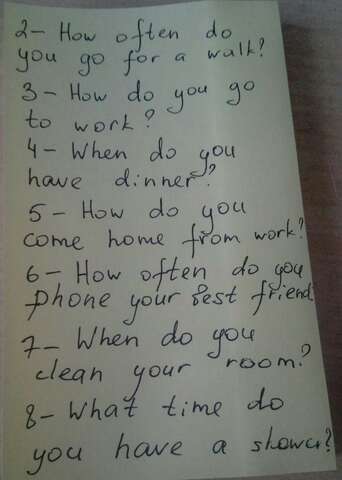 2- How often do
you go for a walk?
3- How do you go
to work?
4- When do you
have dinner?
5- How do you
come home from work?
6- How often do you
phone your best friend
7- When do you
clean your room?
8- What time do
you have a shower?